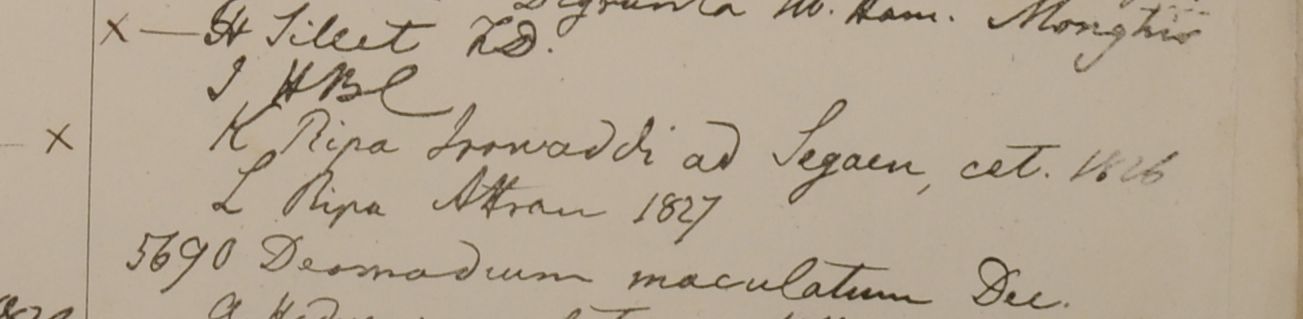 M. Ham. Monghir
x — H Sillet F.D.
I HBC
x K Ripa Irowaddi ad Segaen, cet. 1826
L Ripa Attran 1827
5690 Desmodium maculatum Dec.